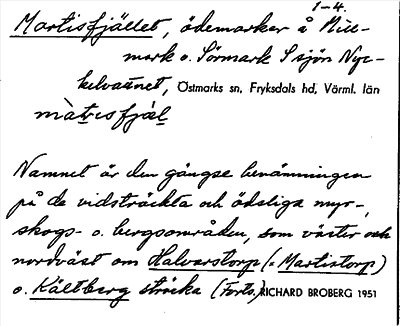 1-4.
Martisfjället, ödemarker å Mill-
mark o. Sörmark S sjön Nyc-
kelvattnet, Östmarks sn, Fryksdals hd, Värml. län
màtisfjäl
Namnet är den gängse benämningen
på de vidsträckta och ödsliga myr-,
skogs- o. bergsområden, som väster och
nordväst om Halvarstorp (= Martistorp)
o. Kältberg sträcka (Forts.) RICHARD BROBERG 1951